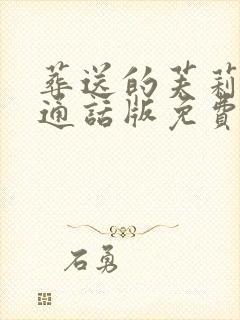 葬送的芙莉
通話版免費
石勇